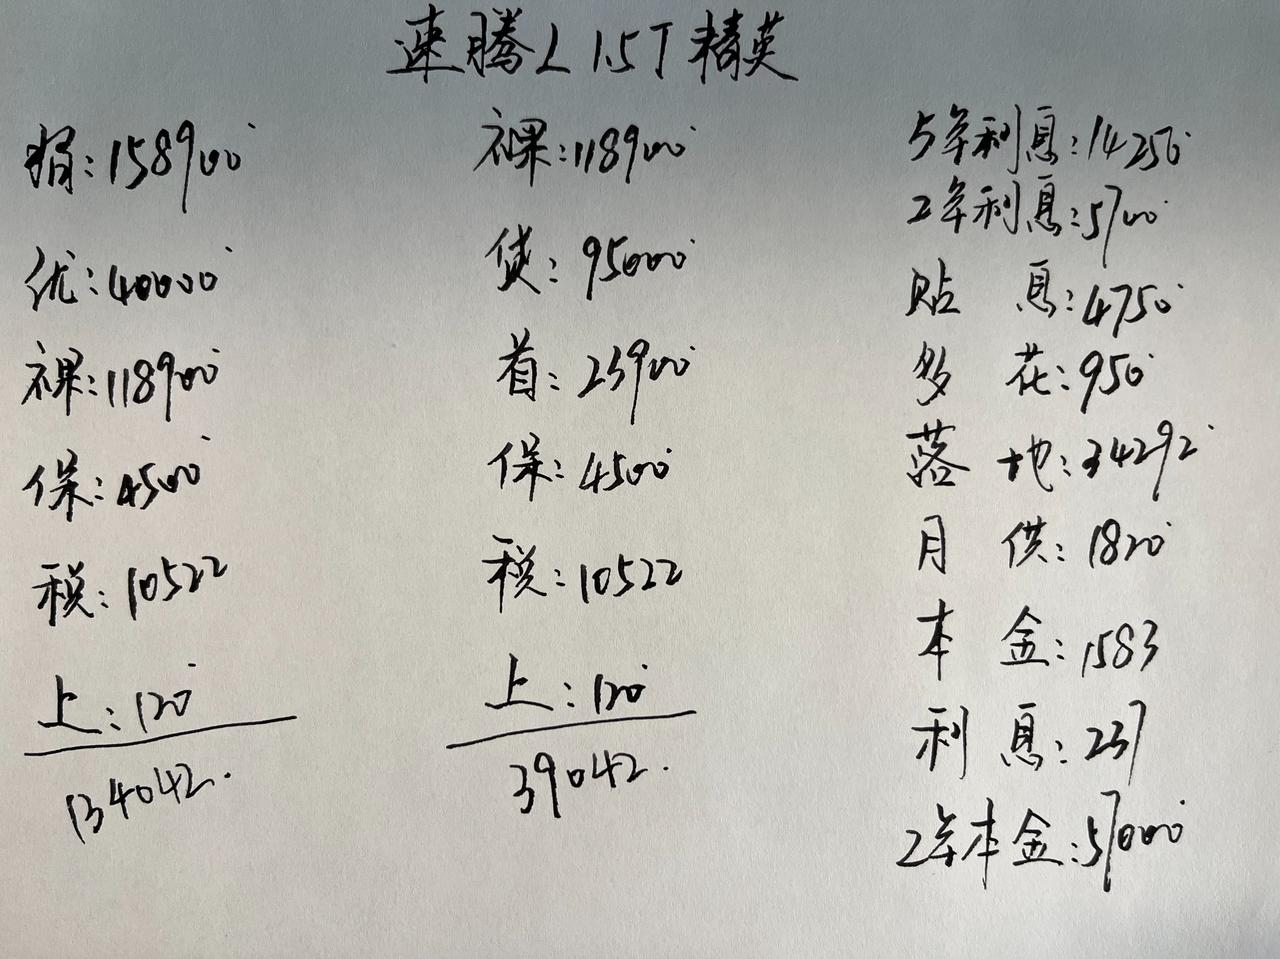 速腾L 1.5T 精英
指:158900
优:40000
裸:118900
保:4500
税:10522
上:120
134042.
裸:118900
贷:95000
首:23900
保:4500
税:10522
上:120
39042.
5年利息:14250
2年利息:5700
贴息:4750
多花:950
落地:34292
月供:1820
本金:1583
利息:237
2年本金:57000